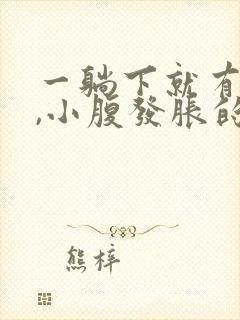 一躺下就有
,小腹發脹的
熊梓